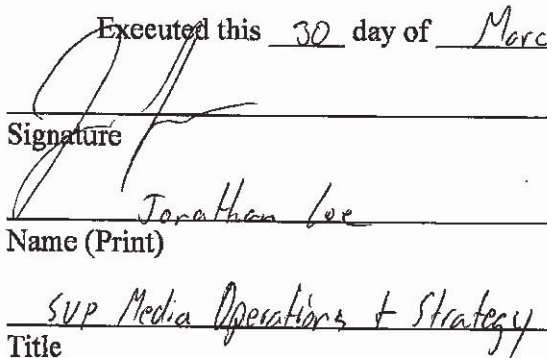 Executed this 30 day of Marc
Signature
Jonathan Loe
Name (Print)
SVP Media Operations + Strategy
Title